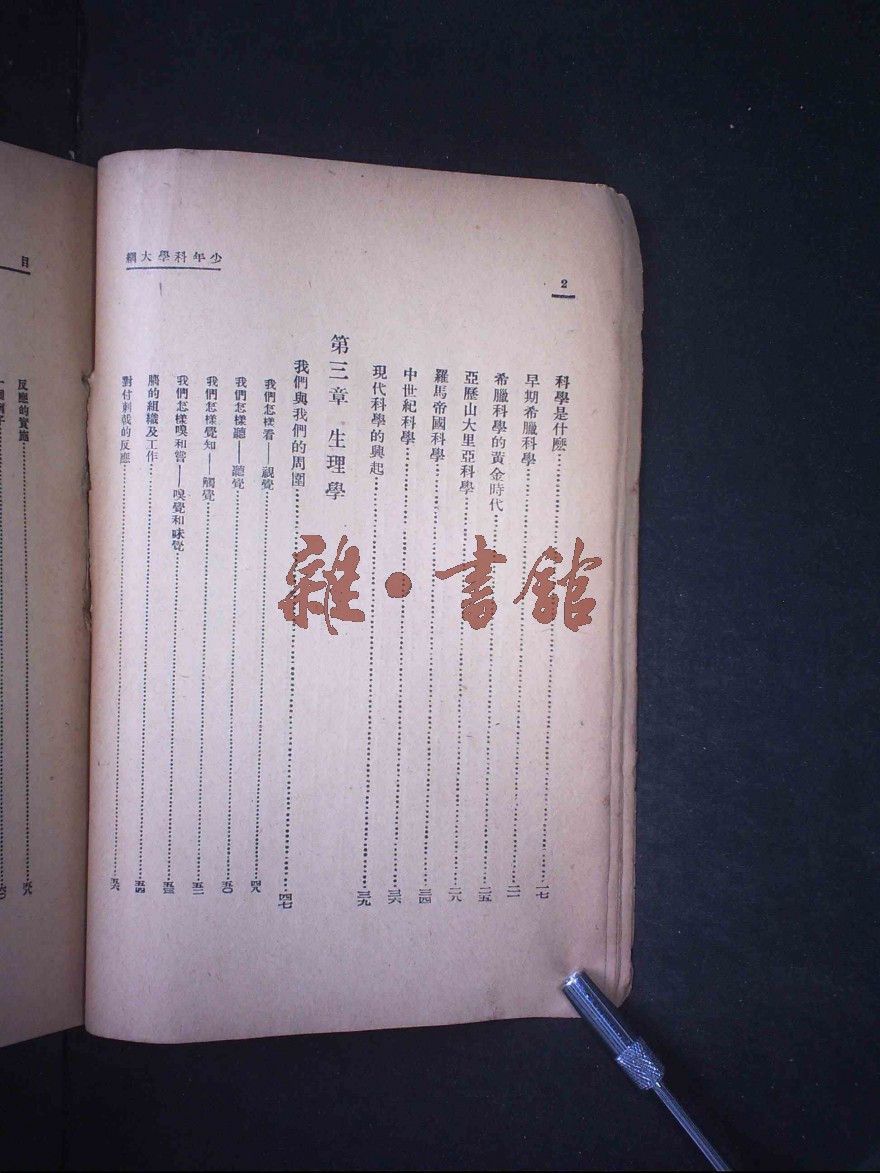 少年科學大綱
2
科學是什麽……一七
早期希臘科學……二一
希臘科學的黃金時代……二五
亞歷山大里亞科學……二八
羅馬帝國科學……三四
中世紀科學……三六
現代科學的興起……三九
第三章 生理學
我們與我們的周圍……四七
我們怎樣看——視覺……四八
我們怎樣聽——聽覺……五〇
我們怎樣覺知——觸覺……五二
我們怎樣嗅和嘗——嗅覺和味覺……五三
腦的組織及工作……五四
對付刺戟的反應……五六
目
反應的實施……五八
一個例子……六〇
雜·書館